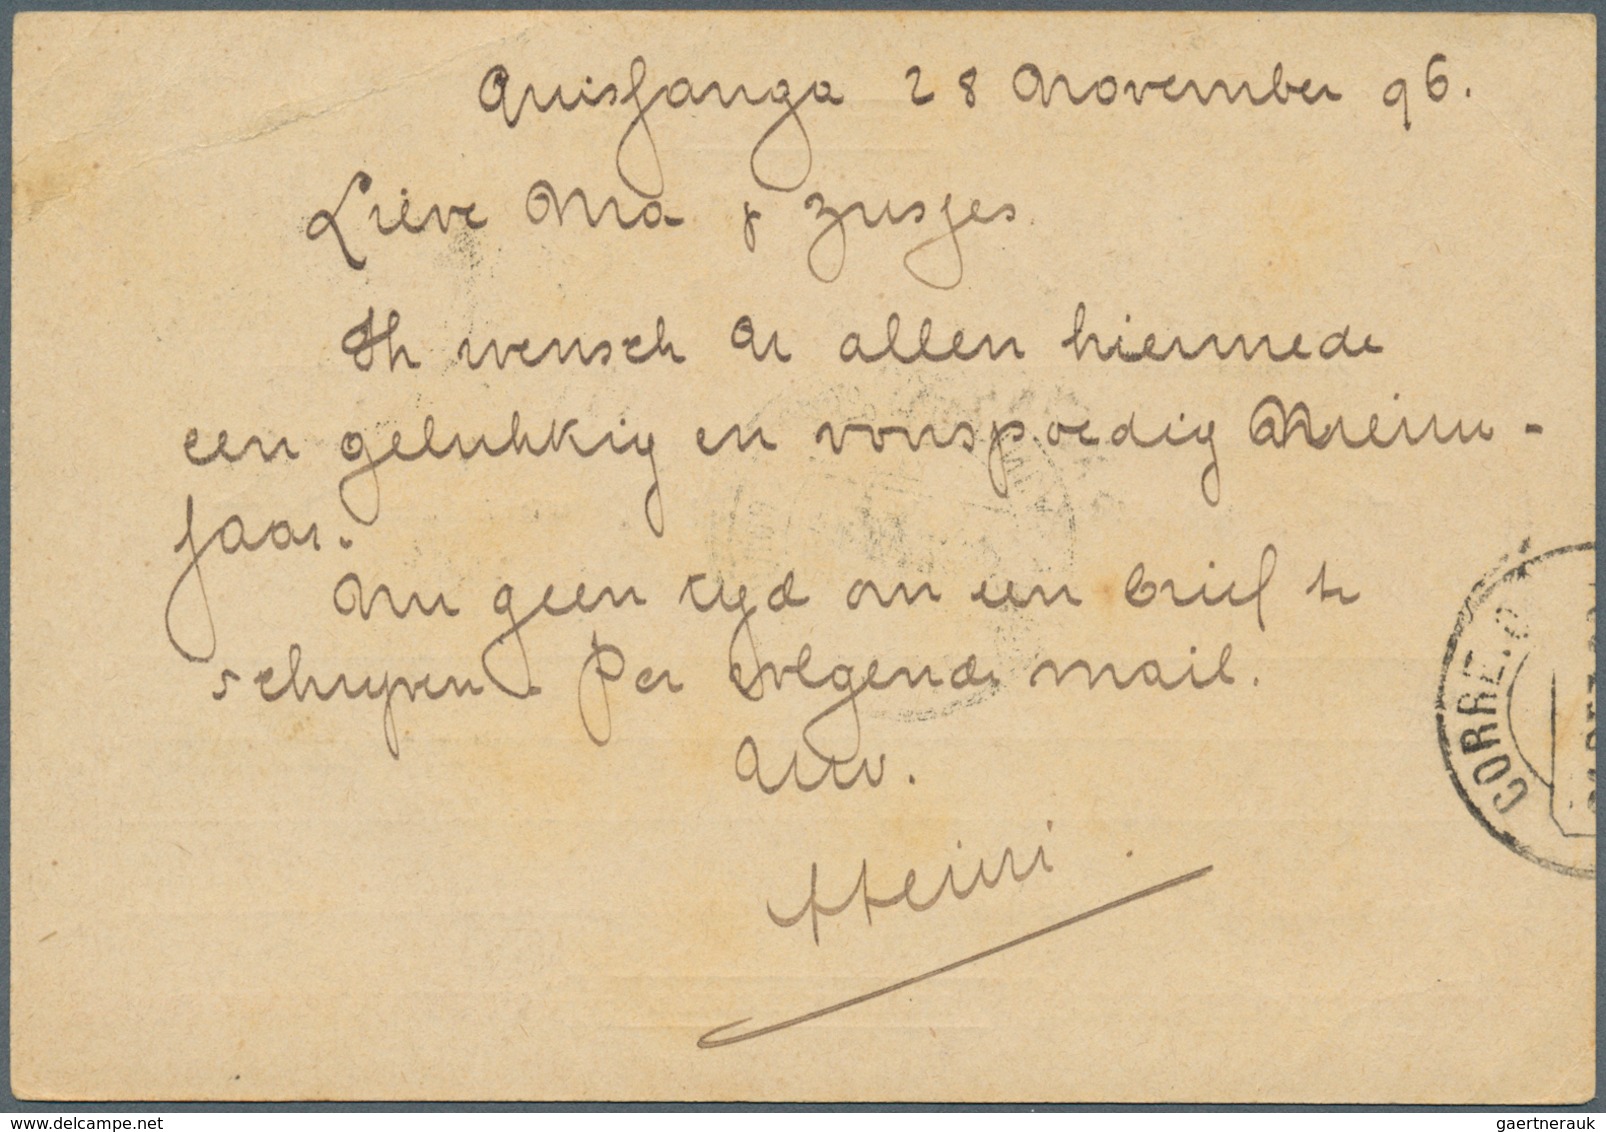 Quisfanga 28 November 96.
Lieve Ma & zusjes
Ik wensch U allen hiermede
een gelukkig en voorspoedig Nieuw-
jaar.
Nu geen tyd om een brief te
schryven. Per volgende mail.
Uw.
Heini.
CORRE.O
delcampe.net
gaertnerauk